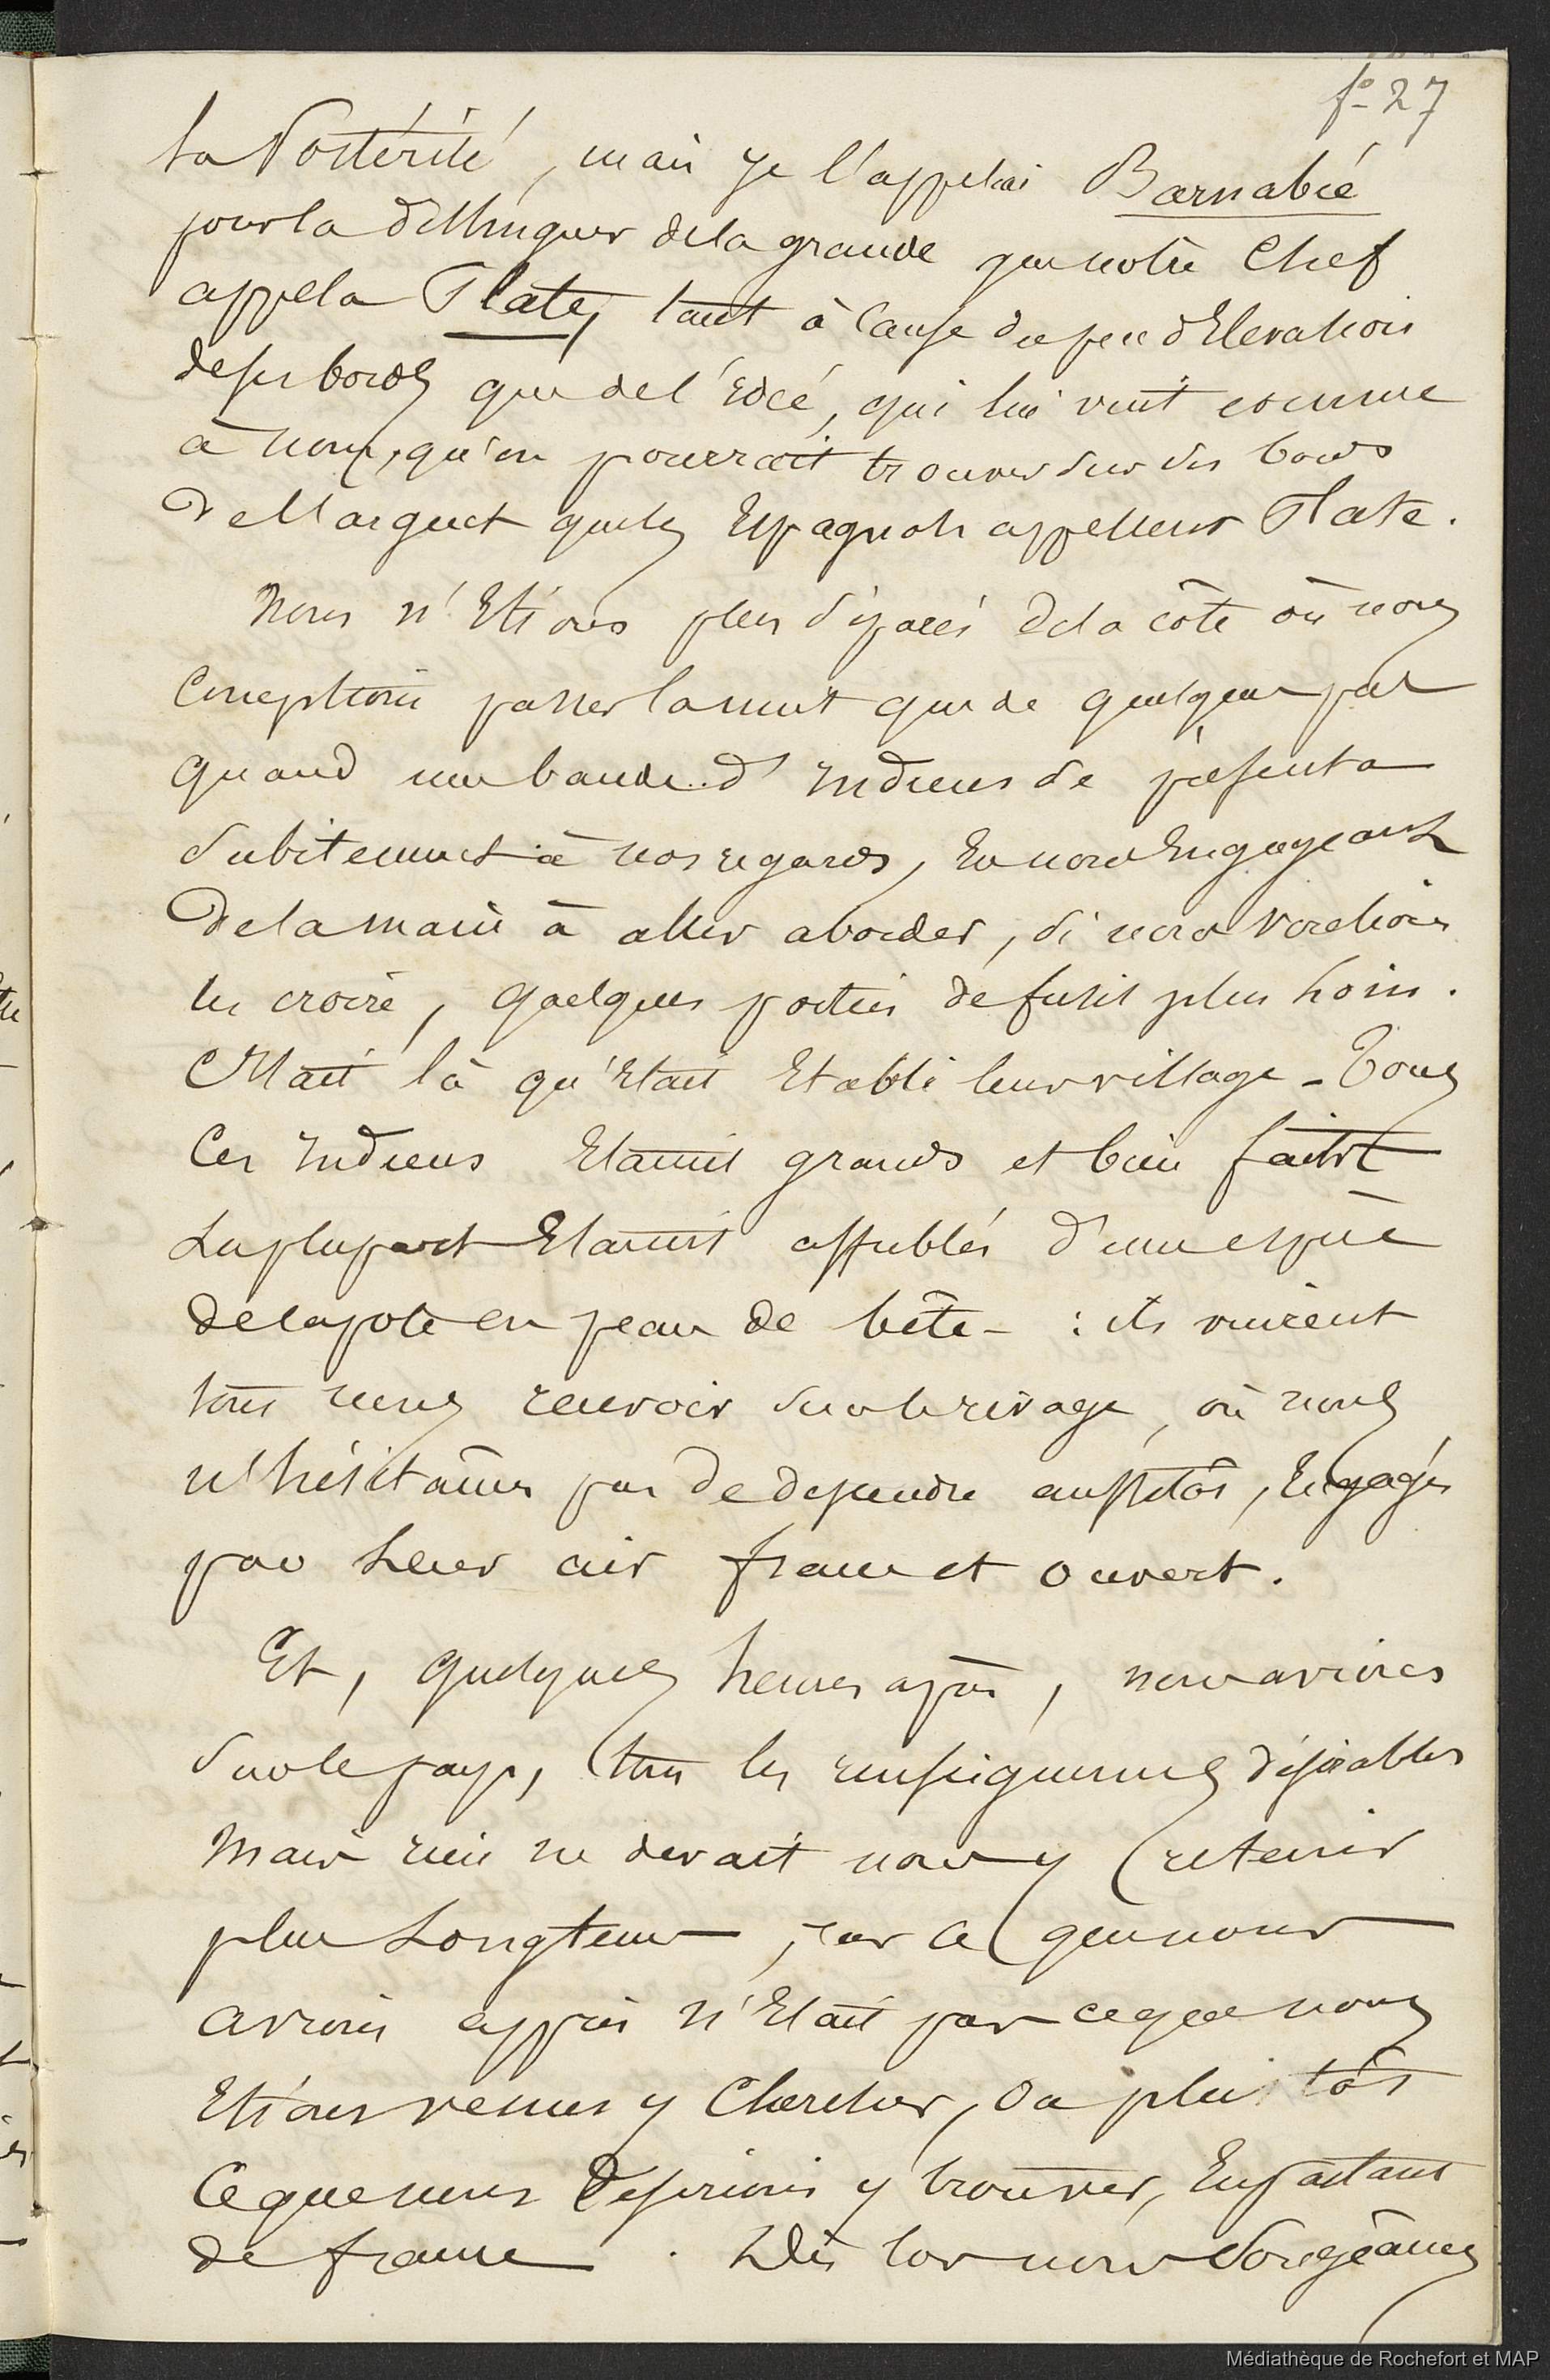 f°- 27
la Postérité, mais je l'appelai Barnabée
pour la distinguer de la grande que notre Chef
appela Plate, tant à Cause du peu d'Elevation
de ses bords que de l'idée, qui lui vint comme
à nous, qu'on pourrait trouver sur ses bords
de l'argent que les Espagnols appellent Plate.
Nous n'Etions plus séparés de la côte où nous
Comptions passer la nuit que de quelques pas
quand une bande d'Indiens se présenta
subitement à nos regards, En nous Engageant
de la main à aller aborder, si nous voulions
les croire, quelques portées de fusil plus Loin.
C'Etait là qu'Etait Etabli leur village - Tous
Ces Indiens Etaient grands et bien faits
La plupart Etaient affublés d'une espèce
de capote en peau de bête - : ils vinrent
tous nous recevoir sur le rivage, où nous
n'hésitâmes pas de descendre aussitôt, Engagés
par Leur air franc et ouvert.
Et, quelques heures après, nous avions
sur le pays, tous les renseignemens désirables
Mais rien ne devait nous y retenir
plus Longtems, car ce que nous
avions appris n'Etait pas ce que nous
Etions venus y Chercher, ou plutôt
Ce que nous Desirions y trouver, En partant
de france. Dès lors nous songeâmes
Médiathèque de Rochefort et MAP